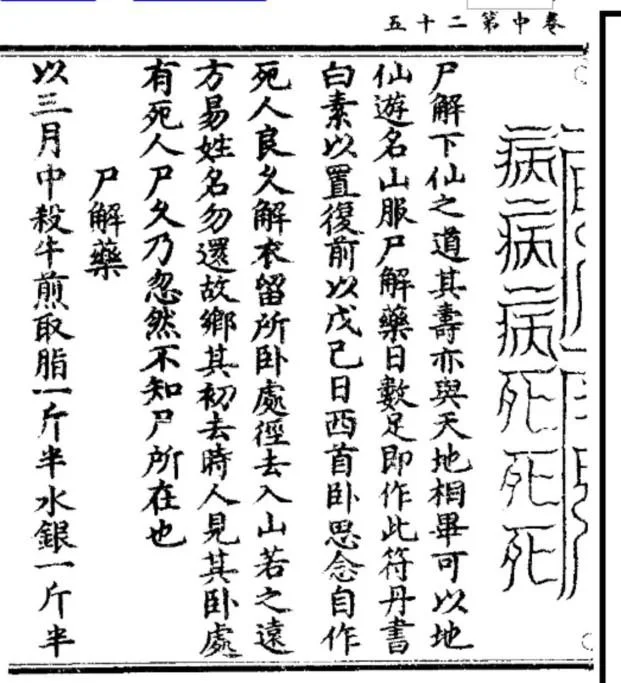 卷中第二十五
病病病死死死
尸解下仙之道其壽亦與天地相畢可以地
仙遊名山服尸解藥日數足即作此符丹書
白素以置復前以戊己日西首卧思念自作
死人良久解衣留所卧處徑去入山若之遠
方易姓名勿還故鄉其初去時人見其卧處
有死人尸久乃忽然不知尸所在也
尸解藥
以三月中殺牛煎取脂一斤半水銀一斤半